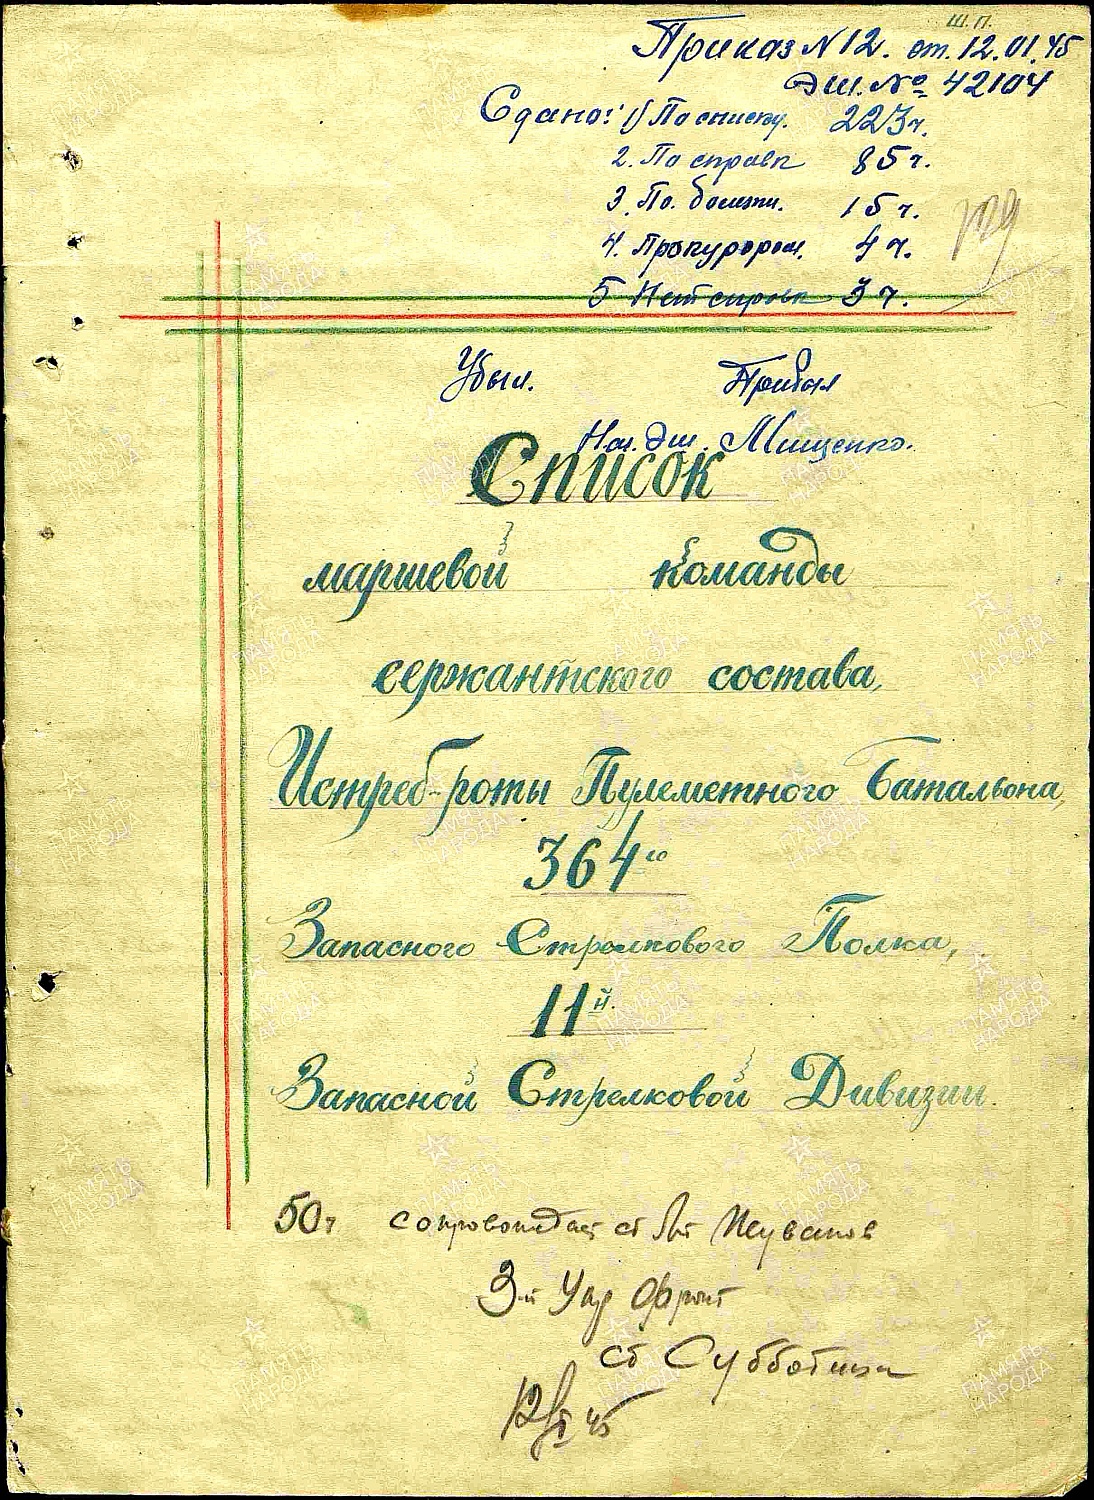 Ш.П.
Приказ N 12. от. 12.01.45
Эш. № 42104
Сдано: 1) По списку. 223 ч.
2. По справк 85 ч.
3. По. болезни. 15 ч.
4. Прокурором. 4 ч.
5 Нет справк 3 ч.
129
Убыл. Прибыл
Нач. Эш. Мищенко.
Список
маршевой команды
сержантского состава,
Истреб-роты Пулеметного Батальона,
364го
Запасного Стрелкового Полка,
11й.
Запасной Стрелковой Дивизии.
50ч сопровождает ст Лт
3-й Укр Фронт
ст Субботица
12/I 45